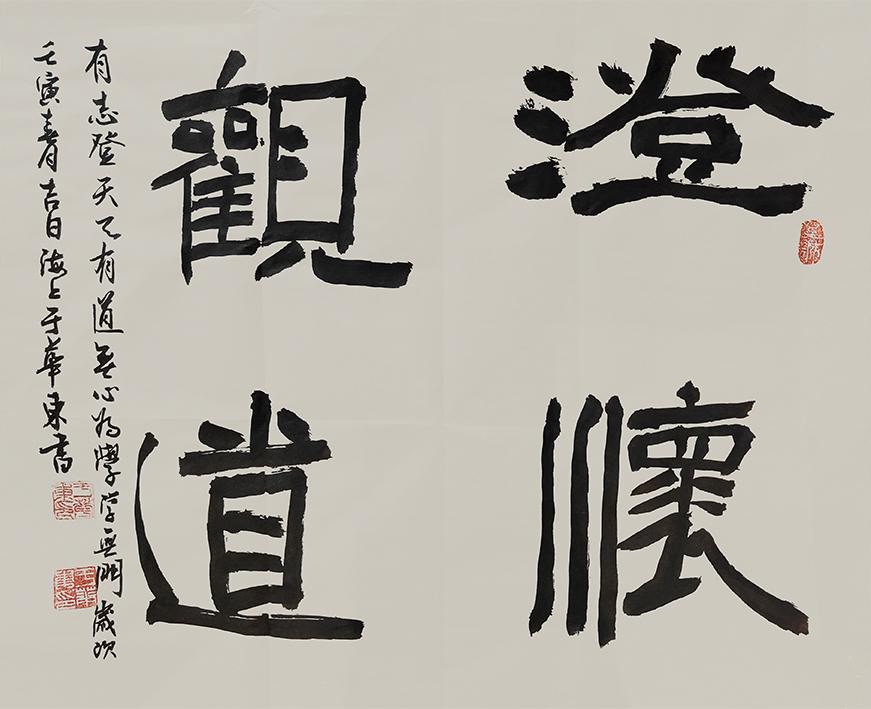 澄懷
觀道
有志登天〻有道無心為學学無門歲次
壬寅春吉日海上于華東書